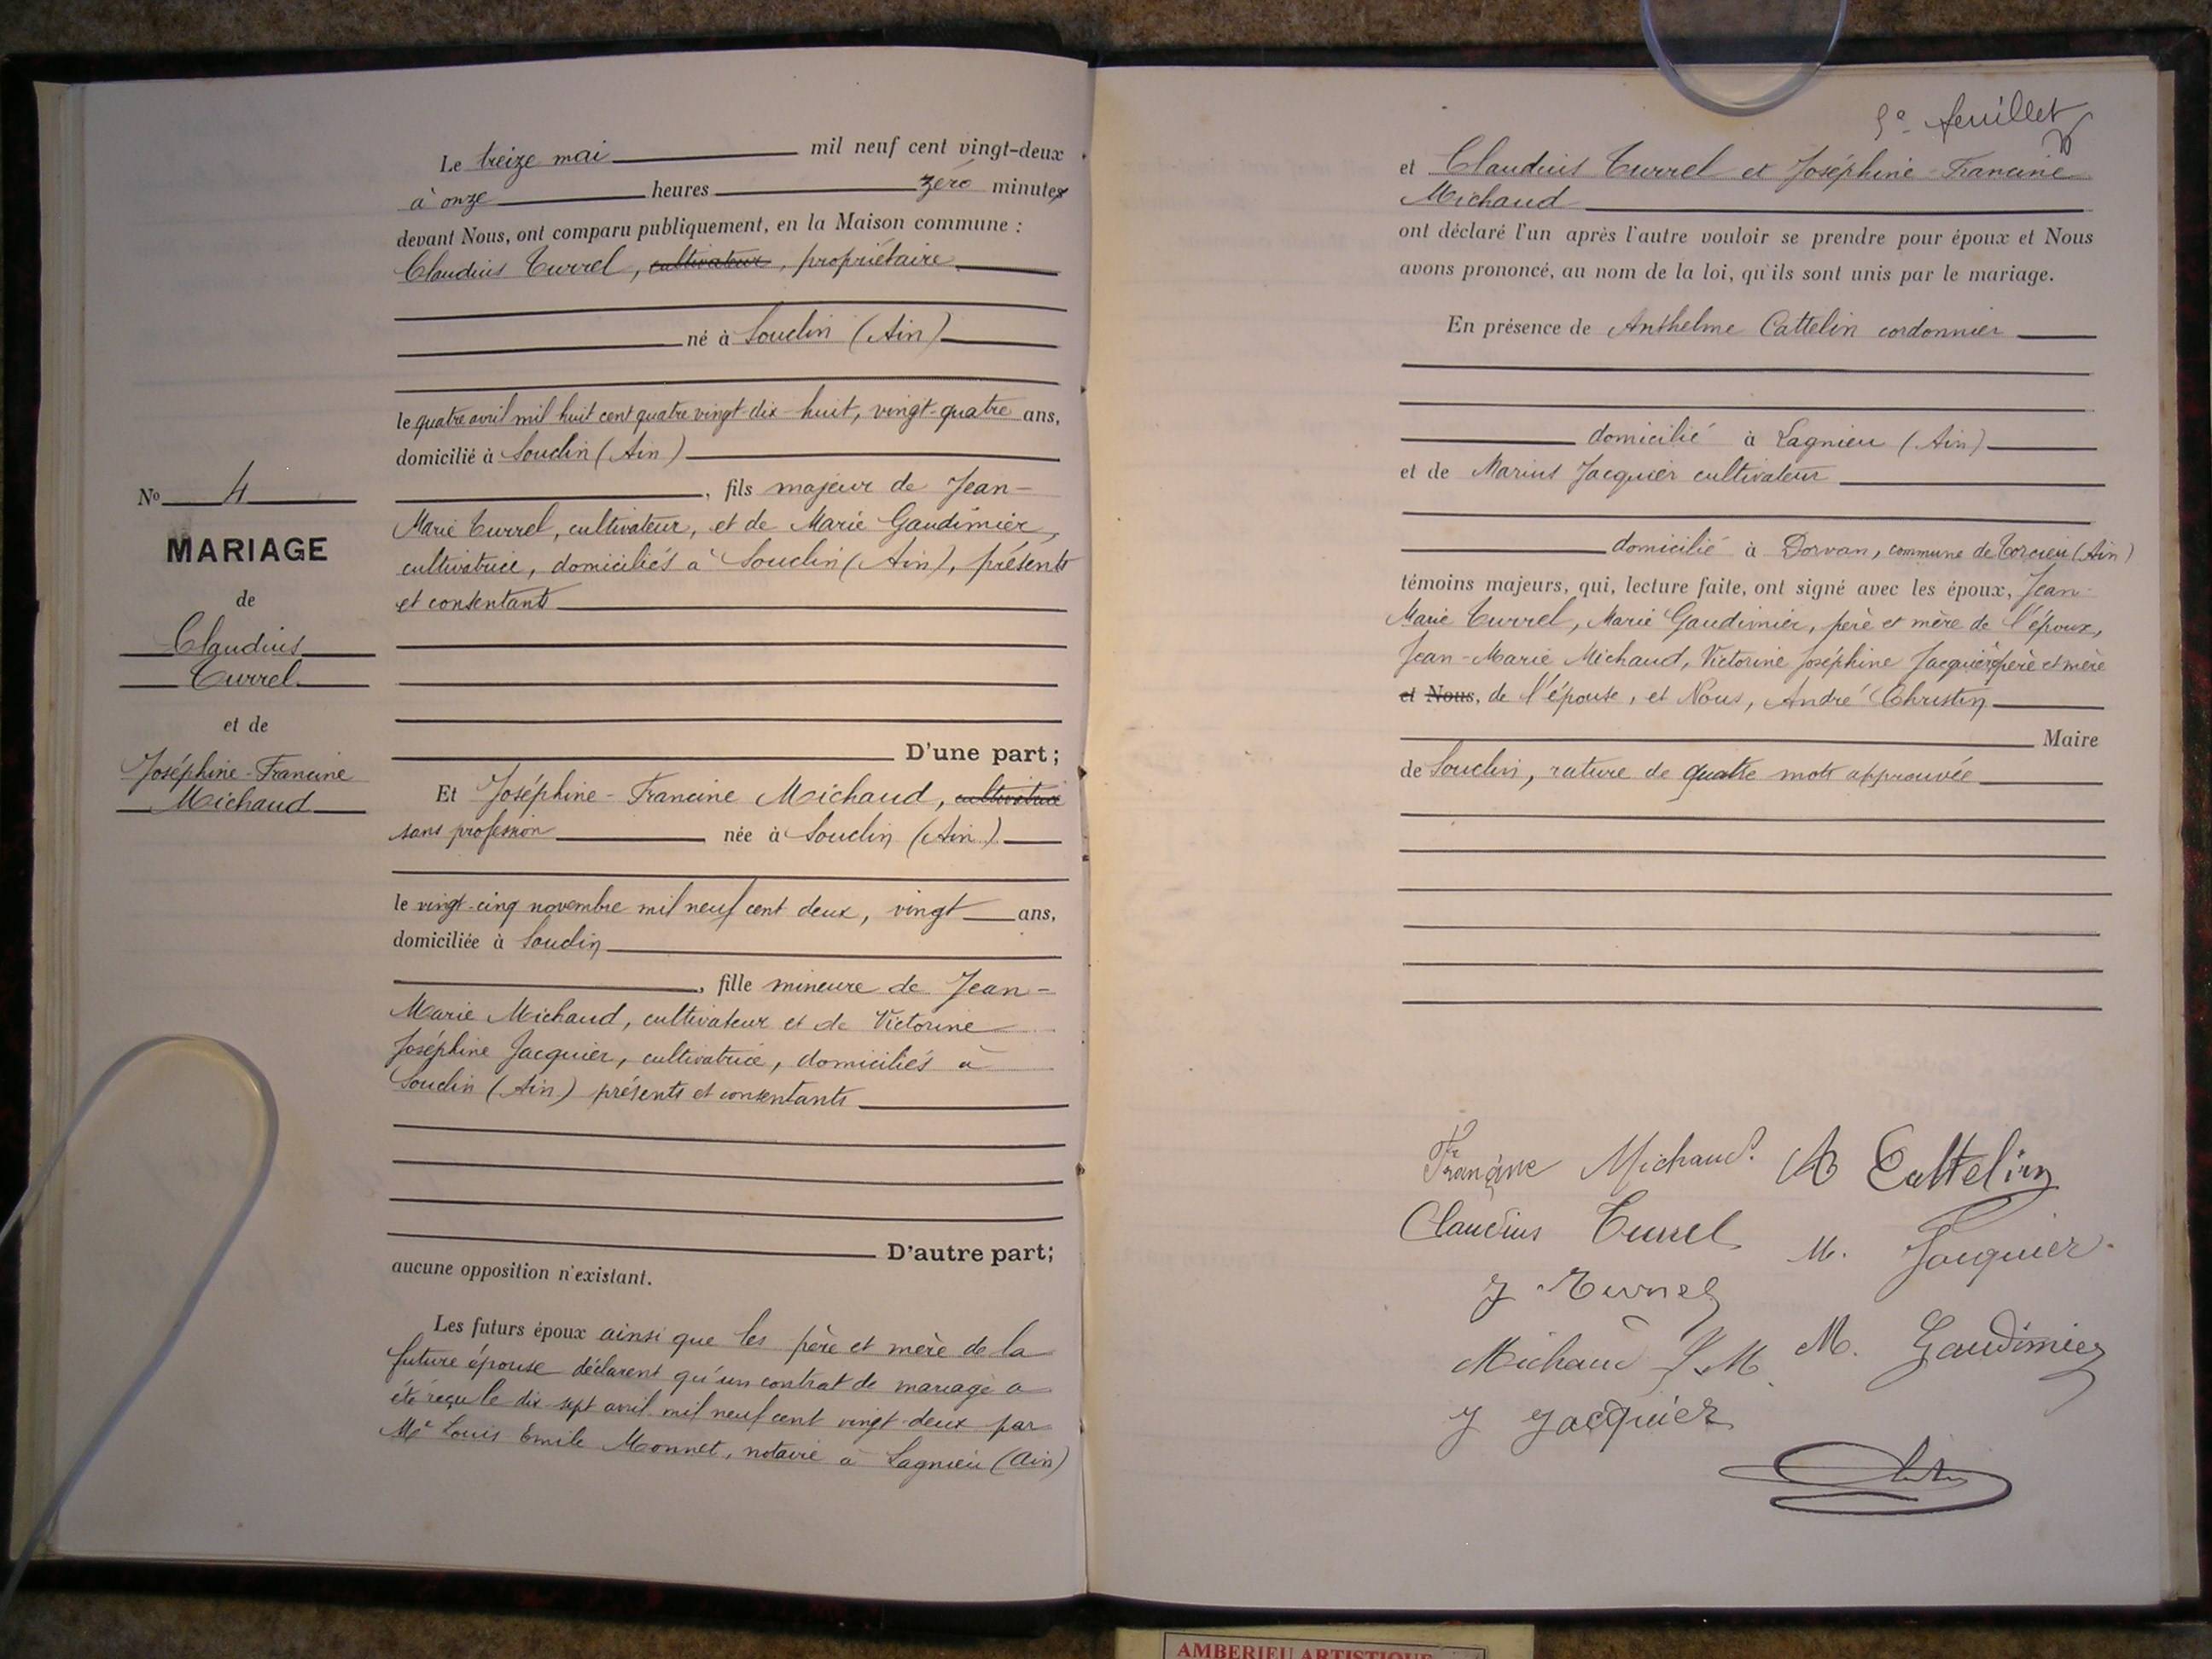 Le treize mai mil neuf cent vingt-deux
à onze heures zéro minutes
devant Nous, ont comparu publiquement, en la Maison commune :
Claudius Turrel, cultivateur, propriétaire
né à Souclin (Ain)
le quatre avril mil huit cent quatre vingt dix-huit, vingt-quatre ans,
domicilié à Souclin (Ain)
, fils majeur de Jean-
Marie Turrel, cultivateur, et de Marie Gaudimier,
cultivatrice, domiciliés à Souclin (Ain), présents
et consentants
D'une part;
Et Joséphine-Francine Michaud, cultivatrice
sans profession née à Souclin (Ain)
le vingt-cinq novembre mil neuf cent deux, vingt ans,
domiciliée à Souclin
, fille mineure de Jean-
Marie Michaud, cultivateur et de Victorine
Joséphine Jacquier, cultivatrice, domiciliés à
Souclin (Ain) présents et consentants
D'autre part;
aucune opposition n'existant.
Les futurs époux ainsi que les père et mère de la
future épouse déclarent qu'un contrat de mariage a
été reçu le dix sept avril mil neuf cent vingt-deux par
Me Louis Emile Monnet, notaire à Lagnieu (Ain)
No 4
MARIAGE
de
Claudius
Turrel
et de
Joséphine-Francine
Michaud
5e feuillet
et Claudius Turrel et Joséphine-Francine
Michaud
ont déclaré l'un après l'autre vouloir se prendre pour époux et Nous
avons prononcé, au nom de la loi, qu'ils sont unis par le mariage.
En présence de Anthelme Cattelin cordonnier
domicilié à Lagnieu (Ain)
et de Marius Jacquier cultivateur
domicilié à Dorvan, commune de Torcieu (Ain)
témoins majeurs, qui, lecture faite, ont signé avec les époux, Jean-
Marie Turrel, Marie Gaudimier, père et mère de l'époux,
Jean-Marie Michaud, Victorine Joséphine Jacquier, père et mère
et Nous, de l'épouse, et Nous, André Christin
Maire
de Souclin, rature de quatre mots approuvée
Francine Michaud. A Cattelin
Claudius Turrel M. Jacquier
J Turrel
Michaud J M M. Gaudimier
J Jacquier
AMBERIEU ARTISTIQUE